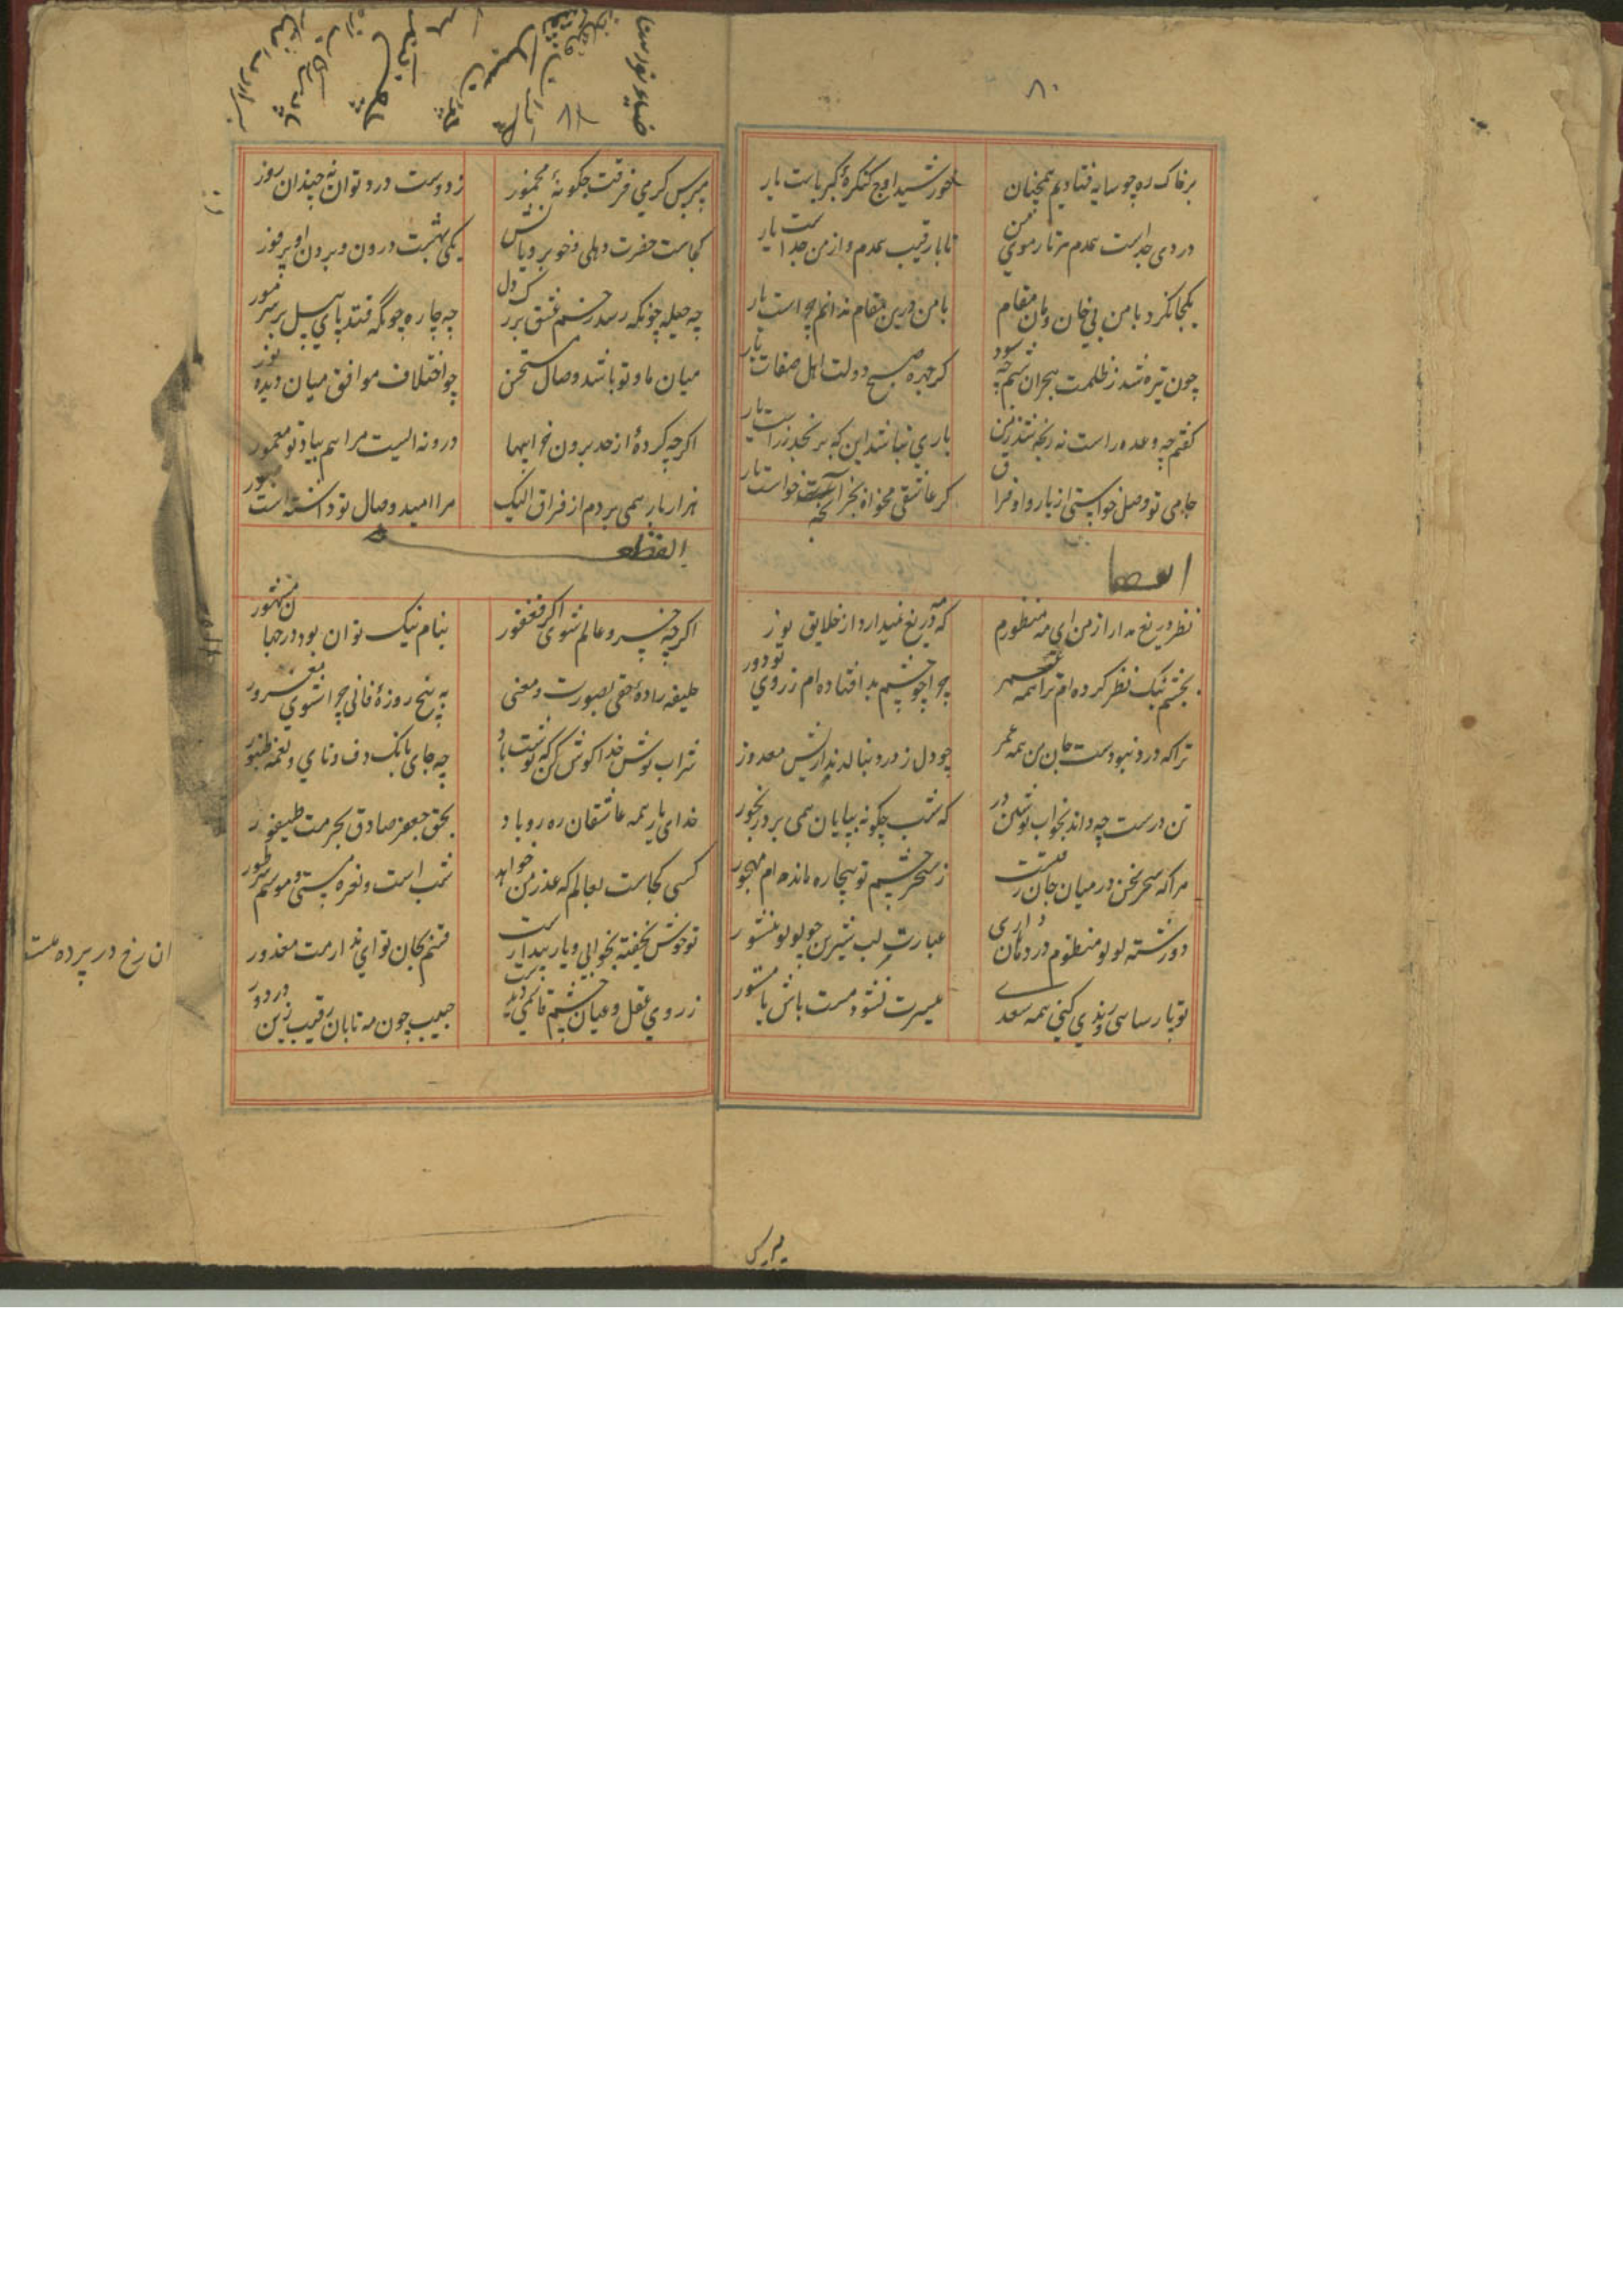 ۸۰
بر خاک ره چو سایه فتادیم همچنان
خورشید اوج کنگرهٔ کبریاست یار
دردی جداست همدم هر تار موی من
تا با رقیب همدم و از من جداست یار
یکجا نکرد با من بی خان و مان مقام
با من درین مقام ندانم چراست یار
چون تیره شد ز ظلمت هجران شبم چه سود
کر چهره صبح دولت اهل صفاست یار
کفتم چه وعده راست نه رنجه شد زمن
باری نباشد این که برنجد ز راست یار
جامی تو وصل خواستی از یار و او فراق
کر عاشقی مخواه بجز آنچه خواست یار
ایضا
نظر دریغ مدار از من ای مه منظورم
که مه دریغ نمیدارد از خلایق نور
بچشم نیک نظر کرده ام ترا همه عمر
چرا چو چشم بد افتاده ام ز روی تو دور
ترا که درد نبودست جان من همه عمر
چو دل ز درد بنالد نداریش معذور
تن درست چه داند بخواب نوشین در
که شب چکونه بپایان همی برد رنجور
مرا که سحر سخن در میان جان رفتست
ز سحر چشم تو بیچاره مانده ام مهجور
دو رشته لولو منظوم در دهان داری
عبارت لب شیرین چو لولو منثور
تو پارسایی و رندی کنی همه سعدی
میسرت نشود مست باش یا مستور
بپرس
ضیاء نور سنا
بپرس کرمی فرقت چکونهٔ مخمور
ز دوست درد توان نه چندان روز
کجاست حضرت دهلی و خوبرویانش
یکی بهشت درون و برون او پر فوز
چه حیله چونکه رسد زخم عشق بر رک دل
چه چاره چونکه فتد پای پیل بر سر مور
میان ما و تو باشد وصال مستحسن
چو اختلاف موافق میان دیده و نور
اکرچه کردهٔ از حد برون خرابیها
درونه ایست مرا هم بیاد تو معمور
هزار بار همی مردم از فراق الیک
مرا امید وصال تو داشته است
ایضا له
اکرچه خسرو عالم شوی اکر فغفور
بنام نیک توان بود در جهان مشهور
خلیفه زادهٔ حقی بصورت و معنی
به پنج روزهٔ فانی چرا شوی مغرور
شراب نوش خدا کوش کن که نوشت باد
چه جای بانک دف و نای و نغمه طنبور
خدای یار همه عاشقان ره رو باد
بحق جعفر صادق بحرمت طیفور
کسی کجاست بعالم که عذر من خواهد
شب است و نعره مستی و موسم طور
تو خوش بخفته بخوابی و یار بیدارست
قسم بجان تو ای ندارمت معذور
ز روی عقل و عیان چشم
حبیب چون مه تابان رقیب
ان رخ در پرده